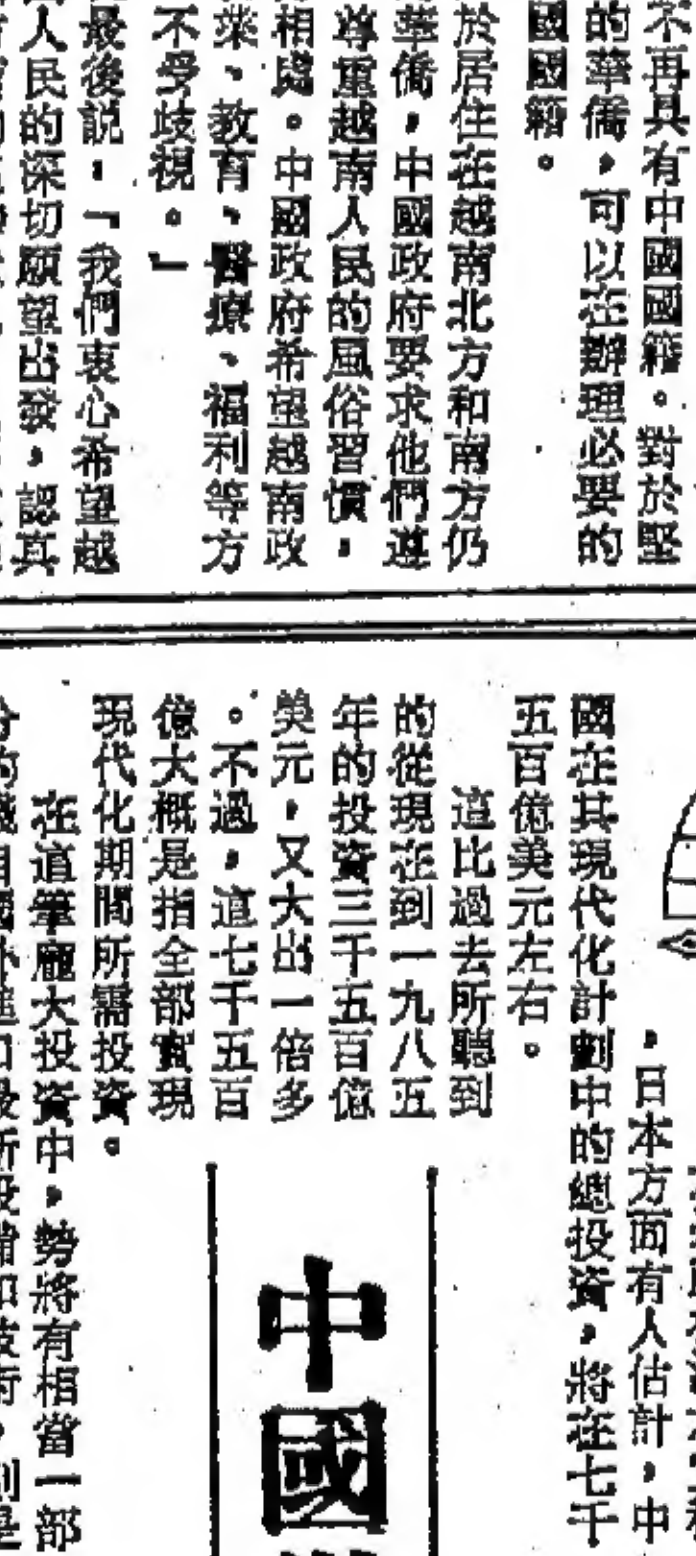 不再具有中國國籍。對於堅
的華僑，可以在辦理必要的
國國籍。
於居住在越南北方和南方仍
華僑，中國政府要求他們遵
尊重越南人民的風俗習慣，
相處。中國政府希望越南政
業、教育、醫療、福利等方
不受歧視。」
最後説：「我們衷心希望越
人民的深切願望出發，認真
，日本方面有人估計，中
國在其現代化計劃中的總投資，將在七千
五百億美元左右。
這比過去所聽到
的從現在到一九八五
年的投資三千五百億
美元，又大出一倍多
。不過，這七千五百
億大概是指全部實現
現代化期間所需投資。
在這筆龐大投資中，勢將有相當一部
中國